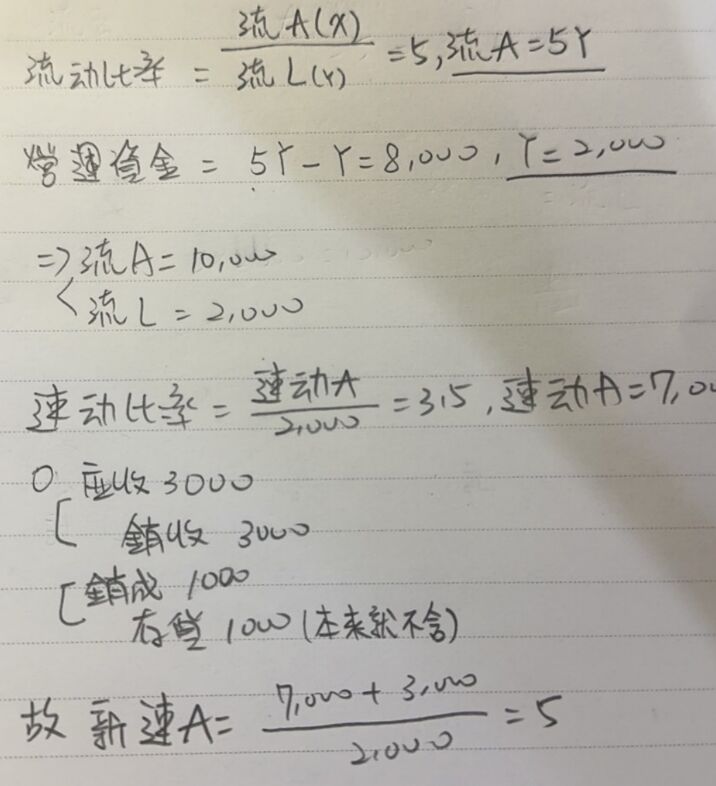 流动比率 = 流A(X) / 流L(Y) = 5, 流A = 5Y
營運資金 = 5Y - Y = 8,000, Y = 2,000
=> 流A = 10,000
< 流L = 2,000
速动比率 = 速动A / 2,000 = 3.5, 速动A = 7,00
○ 应收 3000
[ 銷收 3000
[ 銷成 1000
存貨 1000 (本来就不含)
故 新速A = 7,000 + 3,000 / 2,000 = 5